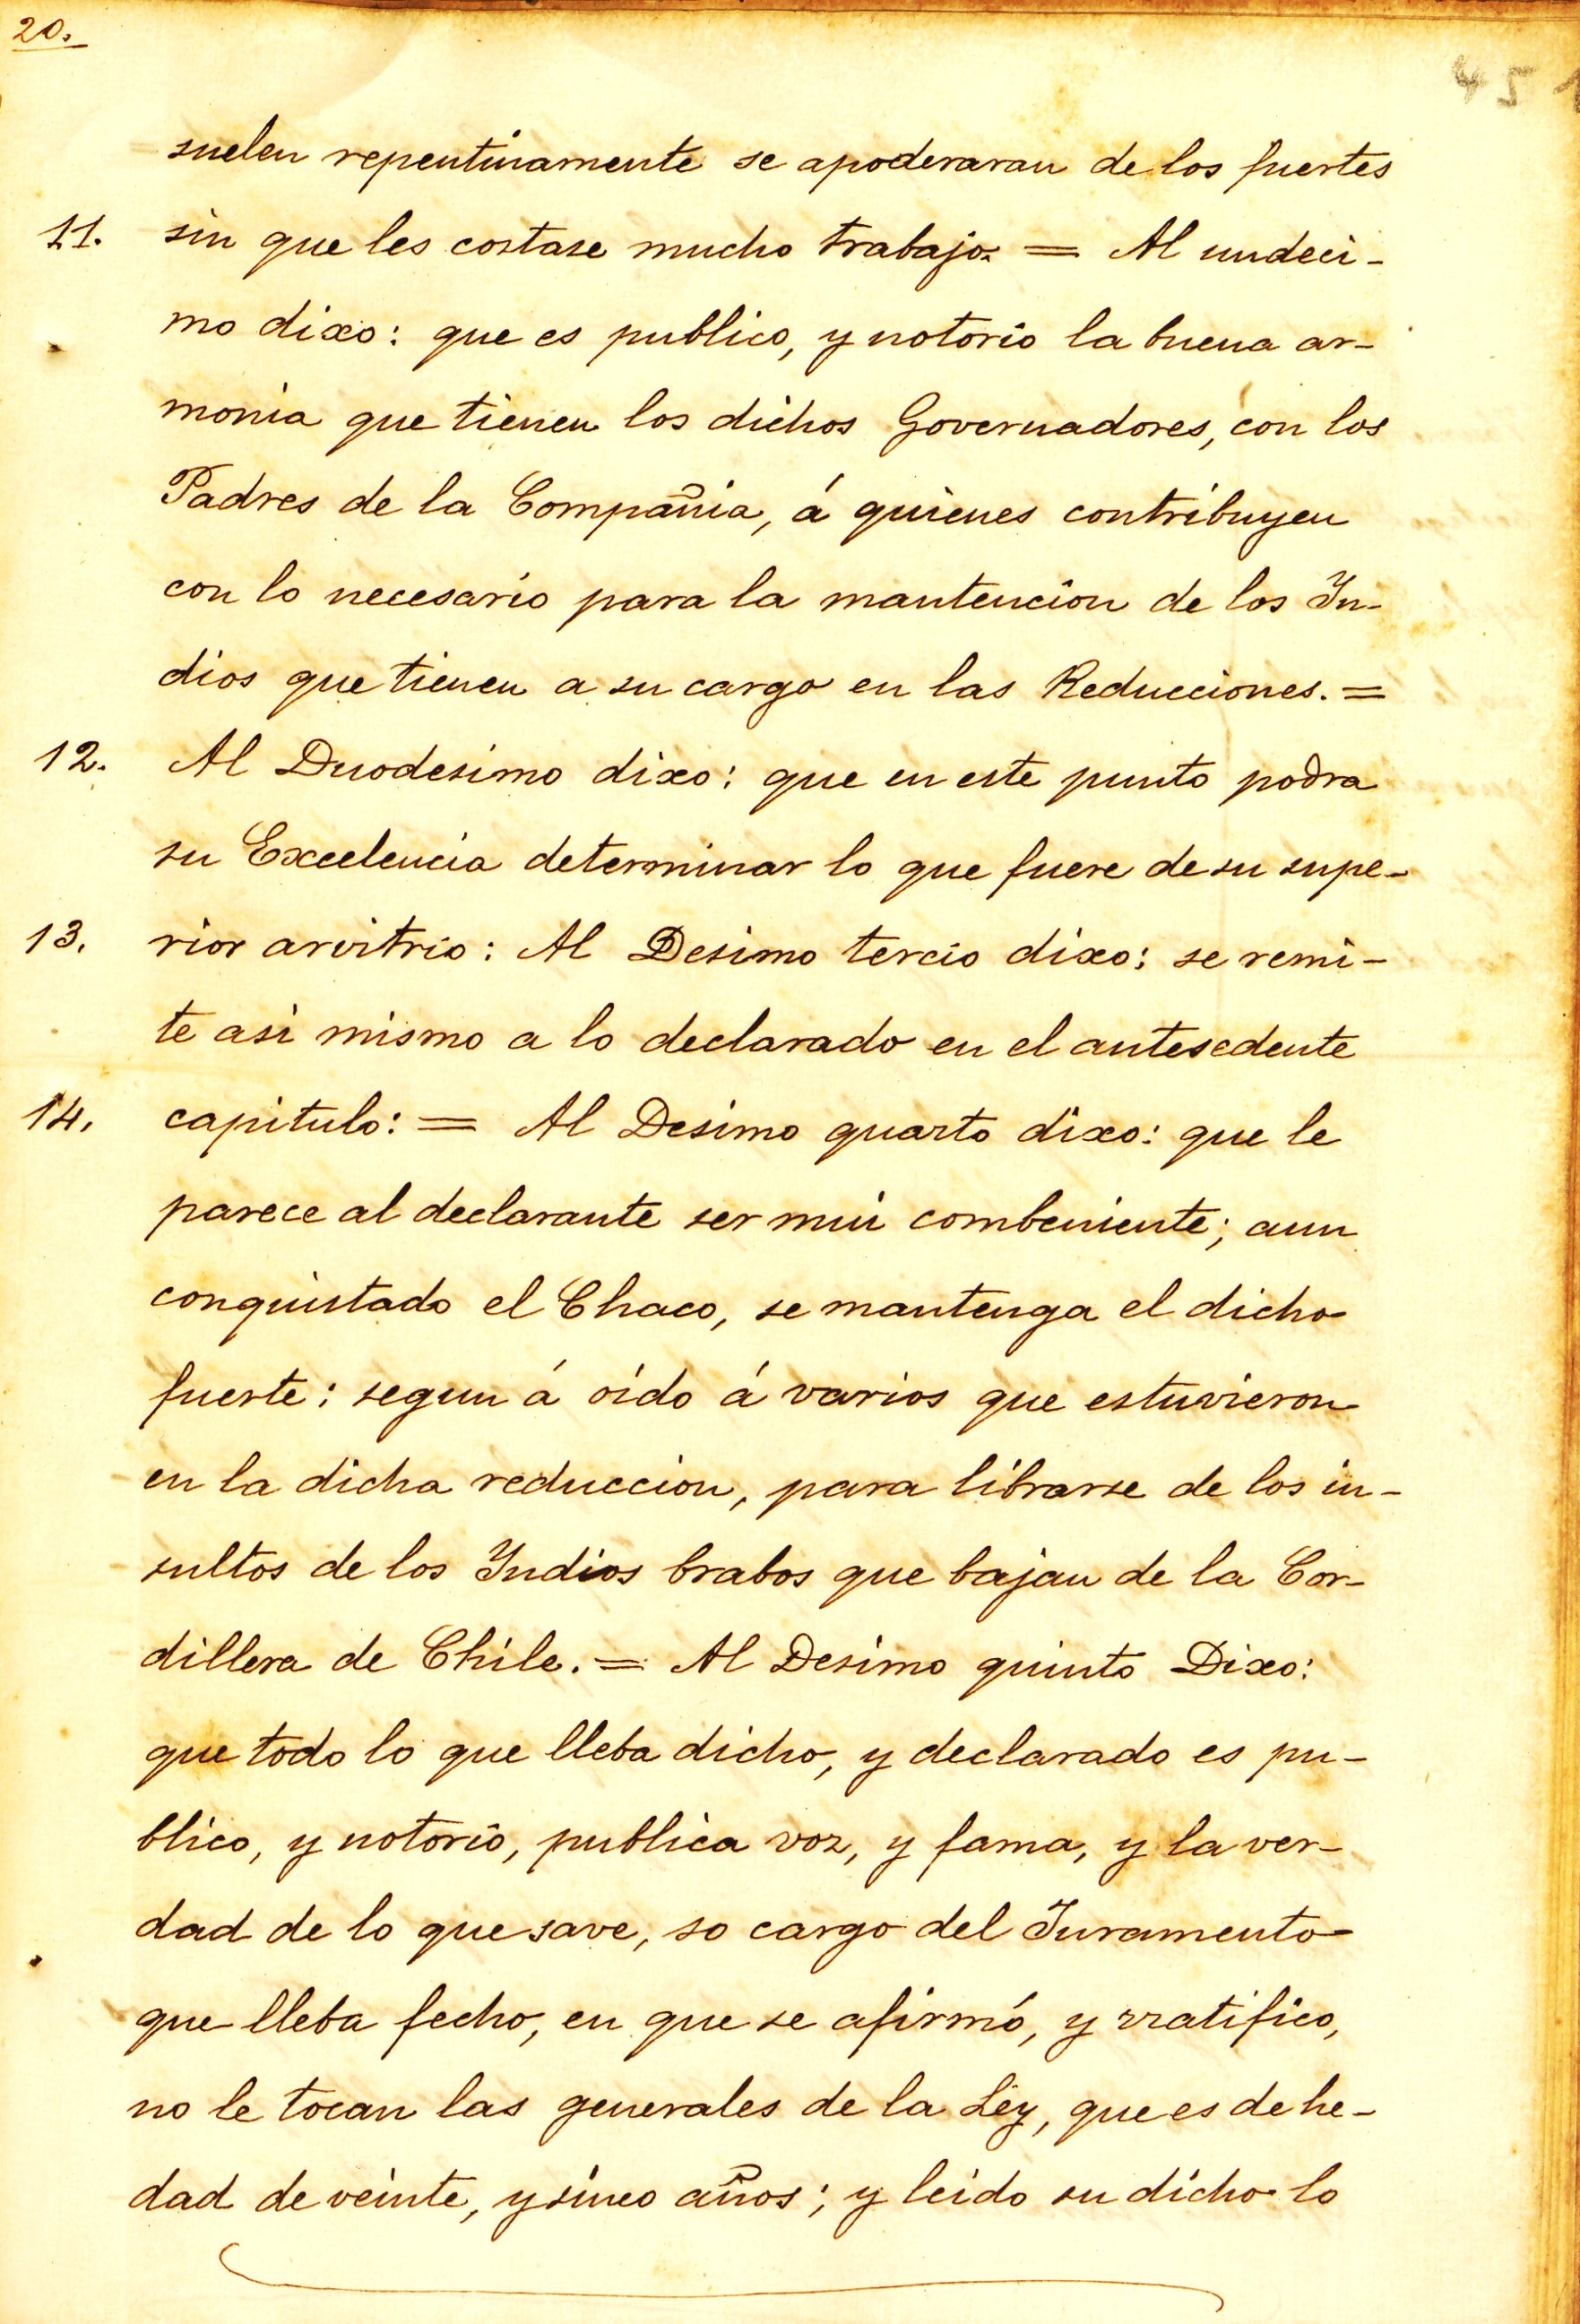 20.
451
suelen repentinamente se apoderaran de los fuertes
11. sin que les costase mucho trabajo. = Al undeci-
mo dixo: que es publico, y notorio la buena ar-
monia que tienen los dichos Governadores, con los
Padres de la Compañia, á quienes contribuyen
con lo necesario para la mantencion de los In-
dios que tienen a su cargo en las Reducciones. =
12. Al Duodesimo dixo: que en este punto podra
su Excelencia determinar lo que fuere de su supe-
13. rior arvitrio: Al Desimo tercio dixo: se remi-
te asi mismo a lo declarado en el antesedente
14. capitulo: = Al Desimo quarto dixo: que le
parece al declarante ser mui combeniente; aun
conquistado el Chaco, se mantenga el dicho
fuerte: segun á oido á varios que estuvieron
en la dicha reduccion, para librarse de los in-
sultos de los Indios brabos que bajan de la Cor-
dillera de Chile. = Al Desimo quinto Dixo:
que todo lo que lleba dicho, y declarado es pu-
blico, y notorio, publica voz, y fama, y la ver-
dad de lo que save, so cargo del Juramento
que lleba fecho, en que se afirmó, y rratifico,
no le tocan las generales de la Ley, que es de he-
dad de veinte, y sinco años; y leido su dicho lo